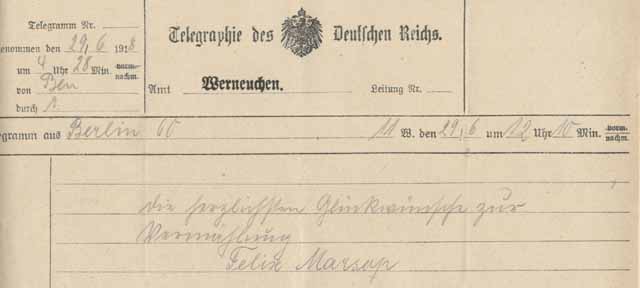 Telegramm Nr.
Telegraphie des Deutschen Reichs.
enommen den 29/6 1918
um 4 Uhr 28 Min. vorm. nachm.
von Ben
durch
Amt Werneuchen. Leitung Nr.
gramm aus Berlin 60 11 W. den 29/6 um 12 Uhr 10 Min. vorm. nachm.
die herzlichsten Glückwünsche zur
Vermählung
Felix Marsop